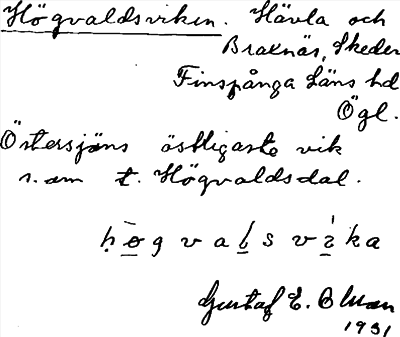 Högvaldsviken. Hävla och
Braknäs, Skeder
Finspånga Läns hd
Ögl.
Östersjöns östligaste vik
t. Högvaldsdal.
Gustaf E. Olman
1931